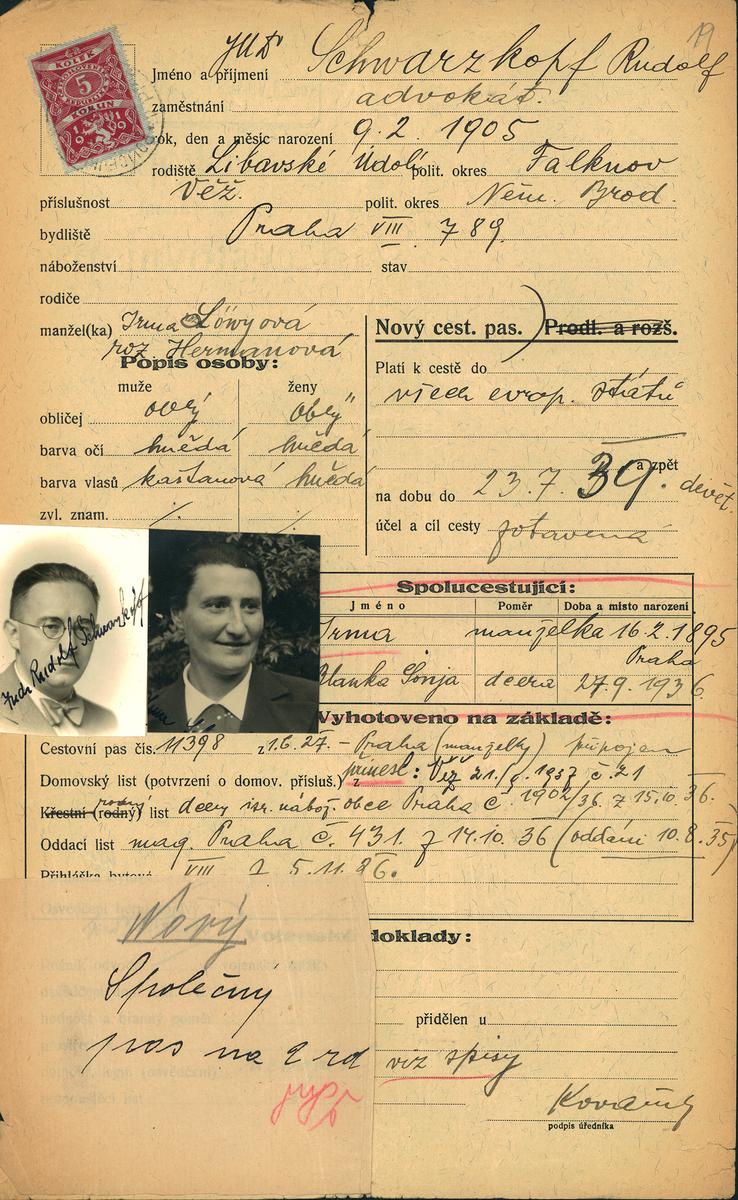 19
Jméno a příjmení JUDr Schwarzkopf Rudolf
zaměstnání advokát.
rok, den a měsíc narození 9.2. 1905
rodiště Libavské Údolí polit. okres Falknov
příslušnost Věž. polit. okres Něm. Brod.
bydliště Praha VIII 789.
náboženství stav
rodiče
manžel(ka) Irma Löwyová
roz. Hermanová
Nový cest. pas.) Prodl. a rozš.
Popis osoby:
muže ženy
obličej oblý oblý
barva očí hnědá hnědá
barva vlasů kaštanová hnědá
zvl. znam. ./. ./.
Platí k cestě do
všech evrop. států
a zpět
na dobu do 23.7. 39. devět.
účel a cíl cesty zotavená
KOLEK
5
KORUN
1919
JUDr Rudolf Schwarzkopf
Spolucestující:
Jméno Poměr Doba a místo narození
Irma manželka 16.2.1895
Praha
Blanka Sonja dcera 27.9.1936.
Vyhotoveno na základě:
Cestovní pas čís. 11398 z 1.6.27. – Praha (manželky) připojen
Domovský list (potvrzení o domov. přísluš.) z přinesl: Věž 21/ 1937 č. 21
Křestní (rodný) list dcery isr. nábož. obce Praha č. 1902/36. z 15.10.36.
rodný
Oddací list mag. Praha č. 431. z 14.10.36 (oddáni 10.8.35)
Přihláška bytová VIII z 5.11.36.
doklady:
Nový
Společný
pas na 2 
přidělen u
viz spisy
podpis úředníka